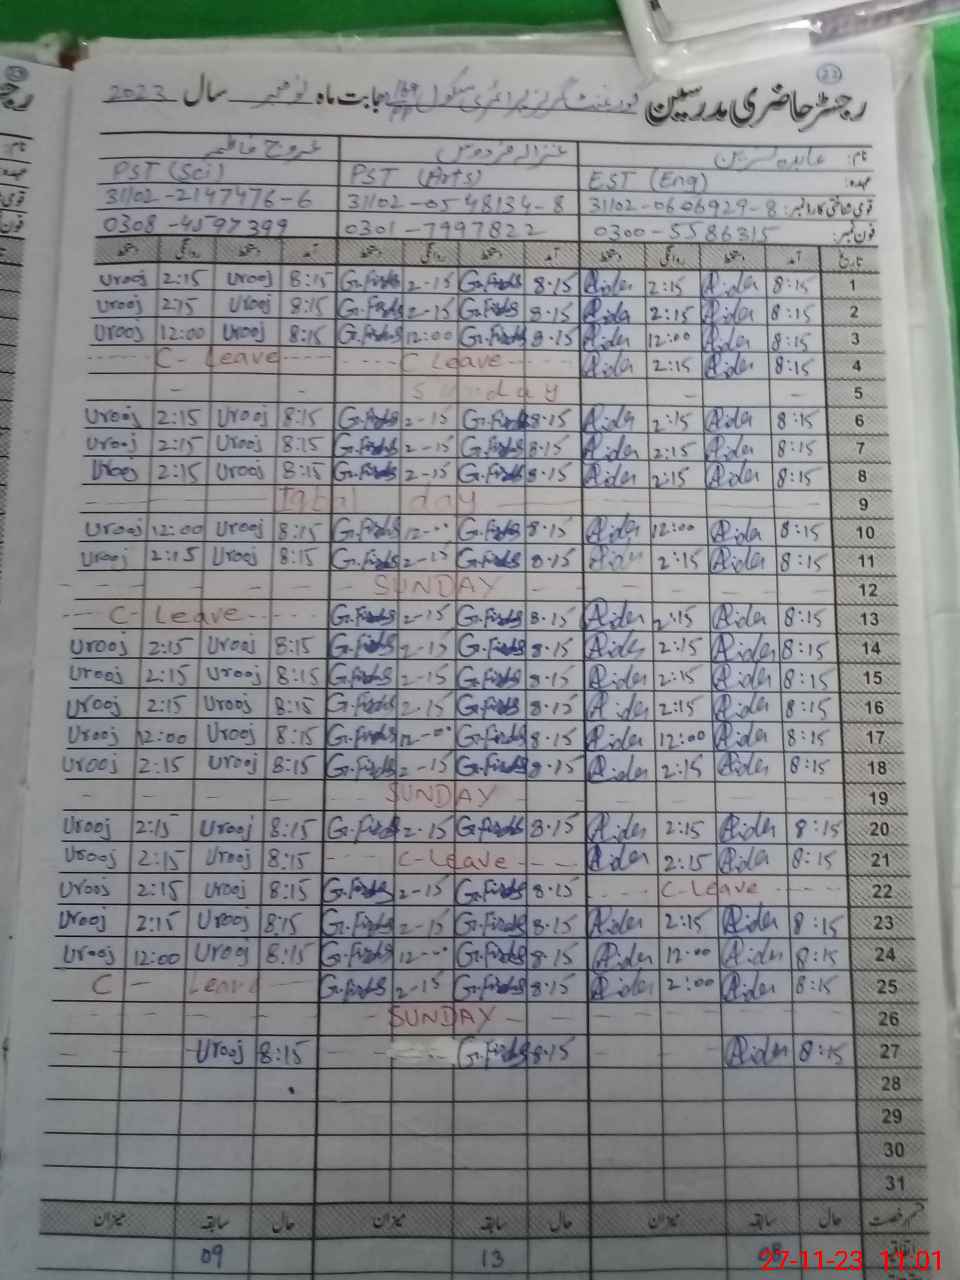 رجسٹر حاضری مدرسین گورنمنٹ گرلز پرائمری سکول بابت ماہ نومبر سال 2023
نام: عابدہ نسرین غزالہ فردوس عروج فاطمہ
عہدہ: EST (Eng) PST (Arts) PST (Sci)
قومی شناختی کارڈ نمبر: 31102-0606929-8 31102-0548134-8 31102-2147476-6
فون نمبر: 0300-5586315 0301-7997822 0308-4597399
تاریخ آمد دستخط روانگی دستخط آمد دستخط روانگی دستخط آمد دستخط روانگی دستخط
Urooj 2:15 Urooj 8:15 G.Firdos 2-15 G.Firdos 8.15 Aida 2:15 Aida 8:15 1
Urooj 2:15 Urooj 8:15 G.Firdos 2-15 G.Firdos 8.15 Aida 2:15 Aida 8:15 2
Urooj 12:00 Urooj 8:15 G.Firdos 12:00 G.Firdos 8.15 Aida 12:00 Aida 8:15 3
C- Leave C Leave Aida 2:15 Aida 8:15 4
Sunday 5
Urooj 2:15 Urooj 8:15 G.Firdos 2-15 G.Firdos 8.15 Aida 2:15 Aida 8:15 6
Urooj 2:15 Urooj 8:15 G.Firdos 2-15 G.Firdos 8.15 Aida 2:15 Aida 8:15 7
Urooj 2:15 Urooj 8:15 G.Firdos 2-15 G.Firdos 8.15 Aida 2:15 Aida 8:15 8
Iqbal day 9
Urooj 12:00 Urooj 8:15 G.Firdos 12-00 G.Firdos 8.15 Aida 12:00 Aida 8:15 10
Urooj 2:15 Urooj 8:15 G.Firdos 2-15 G.Firdos 8.15 Aida 2:15 Aida 8:15 11
SUNDAY 12
C- Leave G.Firdos 2-15 G.Firdos 8.15 Aida 2:15 Aida 8:15 13
Urooj 2:15 Urooj 8:15 G.Firdos 2-15 G.Firdos 8.15 Aida 2:15 Aida 8:15 14
Urooj 2:15 Urooj 8:15 G.Firdos 2-15 G.Firdos 8.15 Aida 2:15 Aida 8:15 15
Urooj 2:15 Urooj 8:15 G.Firdos 2.15 G.Firdos 8.15 Aida 2:15 Aida 8:15 16
Urooj 12:00 Urooj 8:15 G.Firdos 12-00 G.Firdos 8.15 Aida 12:00 Aida 8:15 17
Urooj 2:15 Urooj 8:15 G.Firdos 2-15 G.Firdos 8.15 Aida 2:15 Aida 8:15 18
SUNDAY 19
Urooj 2:15 Urooj 8:15 G.Firdos 2.15 G.Firdos 8.15 Aida 2:15 Aida 8:15 20
Urooj 2:15 Urooj 8:15 C-Leave Aida 2:15 Aida 8:15 21
Urooj 2:15 Urooj 8:15 G.Firdos 2-15 G.Firdos 8.15 C-Leave 22
Urooj 2:15 Urooj 8:15 G.Firdos 2-15 G.Firdos 8.15 Aida 2:15 Aida 8:15 23
Urooj 12:00 Urooj 8:15 G.Firdos 12-00 G.Firdos 8.15 Aida 12:00 Aida 8:15 24
C - Leave G.Firdos 2-15 G.Firdos 8.15 Aida 2:00 Aida 8:15 25
SUNDAY 26
Urooj 8:15 G.Firdos 8.15 Aida 8:15 27
28
29
30
31
قسم رخصت حال سابقہ میزان حال سابقہ میزان حال سابقہ میزان
اتفاقیہ 13 09
27-11-23 11:01